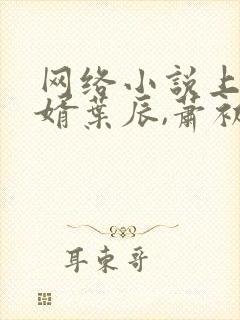 网络小说上
婿叶辰,萧初
耳东哥